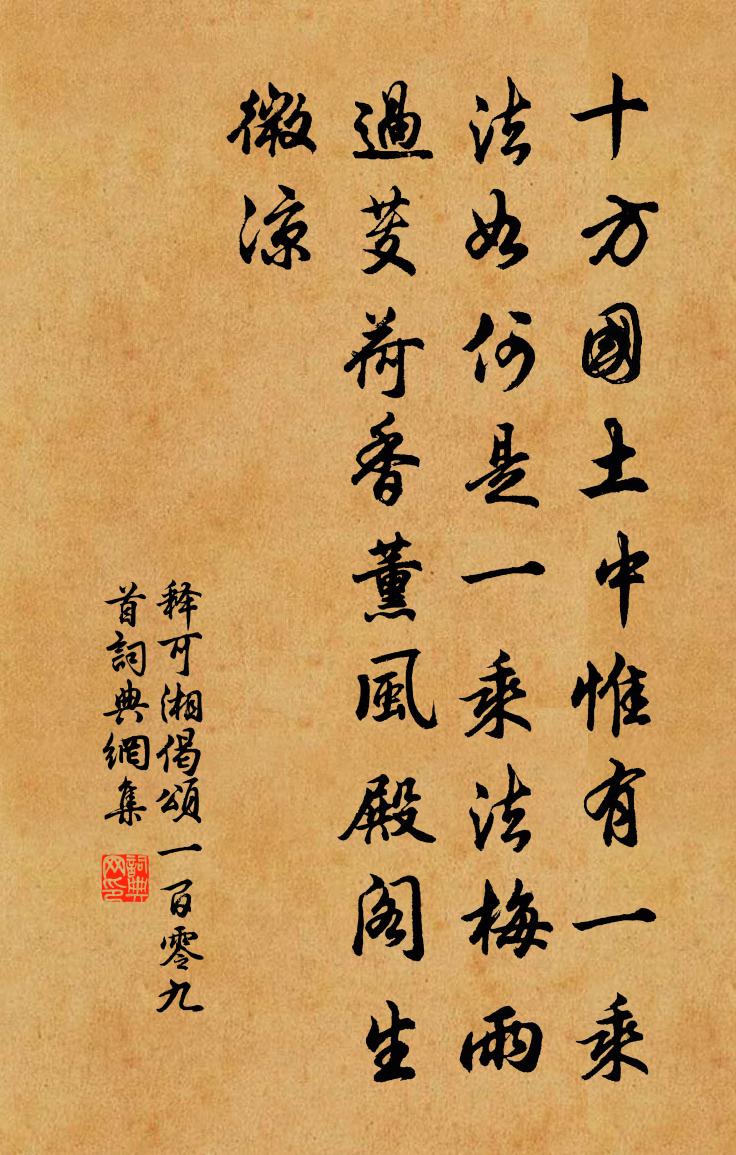 十方國土中惟有一乘
法如何是一乘法梅雨
過芰荷香薰風殿阁生
微凉
释可湘偈頌一百零九
首詞典網集
詞典网印